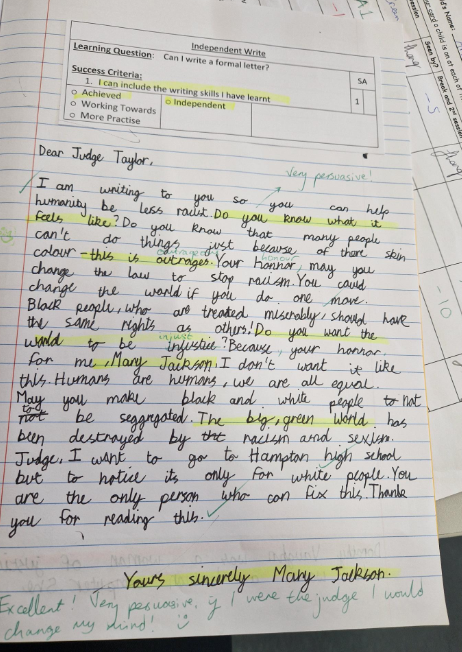 Independent Write
Learning Question: Can I write a formal letter?
Success Criteria:
SA
1. I can include the writing skills I have learnt
1
o Achieved
o Independent
o Working Towards
o More Practise
Dear Judge Taylor,
Very persuasive!
I am writing to you so you can help
humanity be less racist. Do you know what it
feels like? Do you know that many people
can't do things just because of there skin
colour - this is outrages. Your honnor, may you
outrageous
honour
change the law to stop racism. You could
change the world if you do one move.
Black people, who are treated miserably, should have
the same rights as others! Do you want the
world to be injustice? Because, your honnor.
injust
For me, Mary Jackson, I don't want it like
this. Humans are humans, we are all equal.
May you make black and white people to not
to
not be seggregated. The big, green world has
been destroyed by the racism and sexism.
Judge, I want to go to Hampton high school
but to notice its only for white people. You
are the only person who can fix this! Thank
you for reading this.
Yours sincerely Mary Jackson.
Excellent! Very persuasive, if I were the judge I would
change my mind!
-1
-5
-10